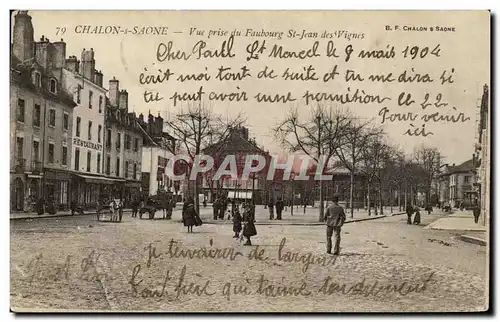 79 CHALON-s-SAONE — Vue prise du Faubourg St-Jean des Vignes
B. F. CHALON s SAONE
Cher Paul St Marcel le 9 mais 1904
écrit moi tout de suite et tu me dira si
tu peut avoir une permition le 22
Pour venir
ici
RESTAURANT
CARPEDIA
je t'envairer de largen
Ton père qui t'aime tendrement